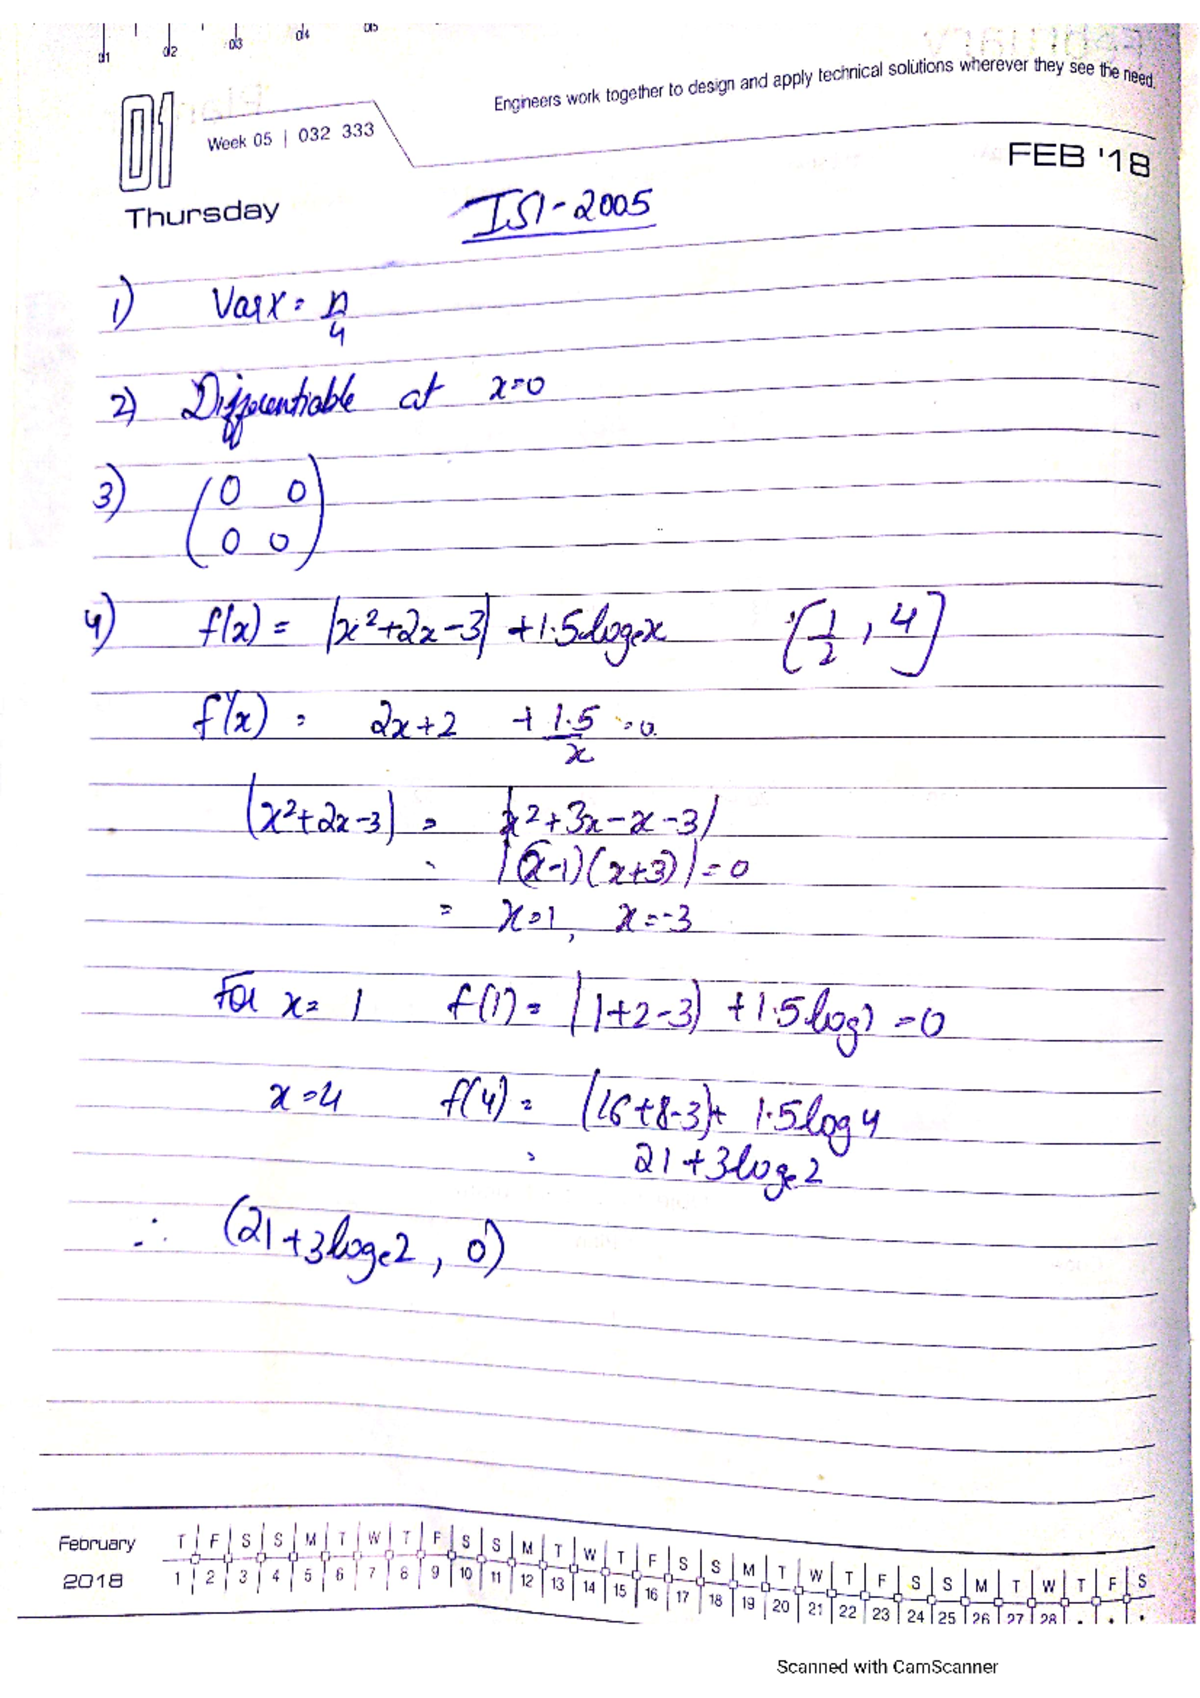 01 02 03 04 05
Engineers work together to design and apply technical solutions wherever they see the need.
01
Week 05 | 032 333
FEB '18
Thursday
ISI-2005
1) Var X = n/4
2) Differentiable at x=0
3) (0 0
0 0)
4) f(x) = |x²+2x-3| + 1.5 logₑx [1/2, 4]
f'(x) = 2x+2 + 1.5/x = 0
(x²+2x-3) = |x²+3x-x-3|
= |(x-1)(x+3)| = 0
= x=1, x=-3
For x = 1 f(1) = |1+2-3| + 1.5 log1 = 0
x=4 f(4) = (16+8-3)+ 1.5 log 4
= 21+3 logₑ2
∴ (21+3logₑ2, 0)
February T F S S M T W T F S S M T W T F S S M T W T F S S M T W T F S
2018 1 2 3 4 5 6 7 8 9 10 11 12 13 14 15 16 17 18 19 20 21 22 23 24 25 26 27 28 . . .
Scanned with CamScanner